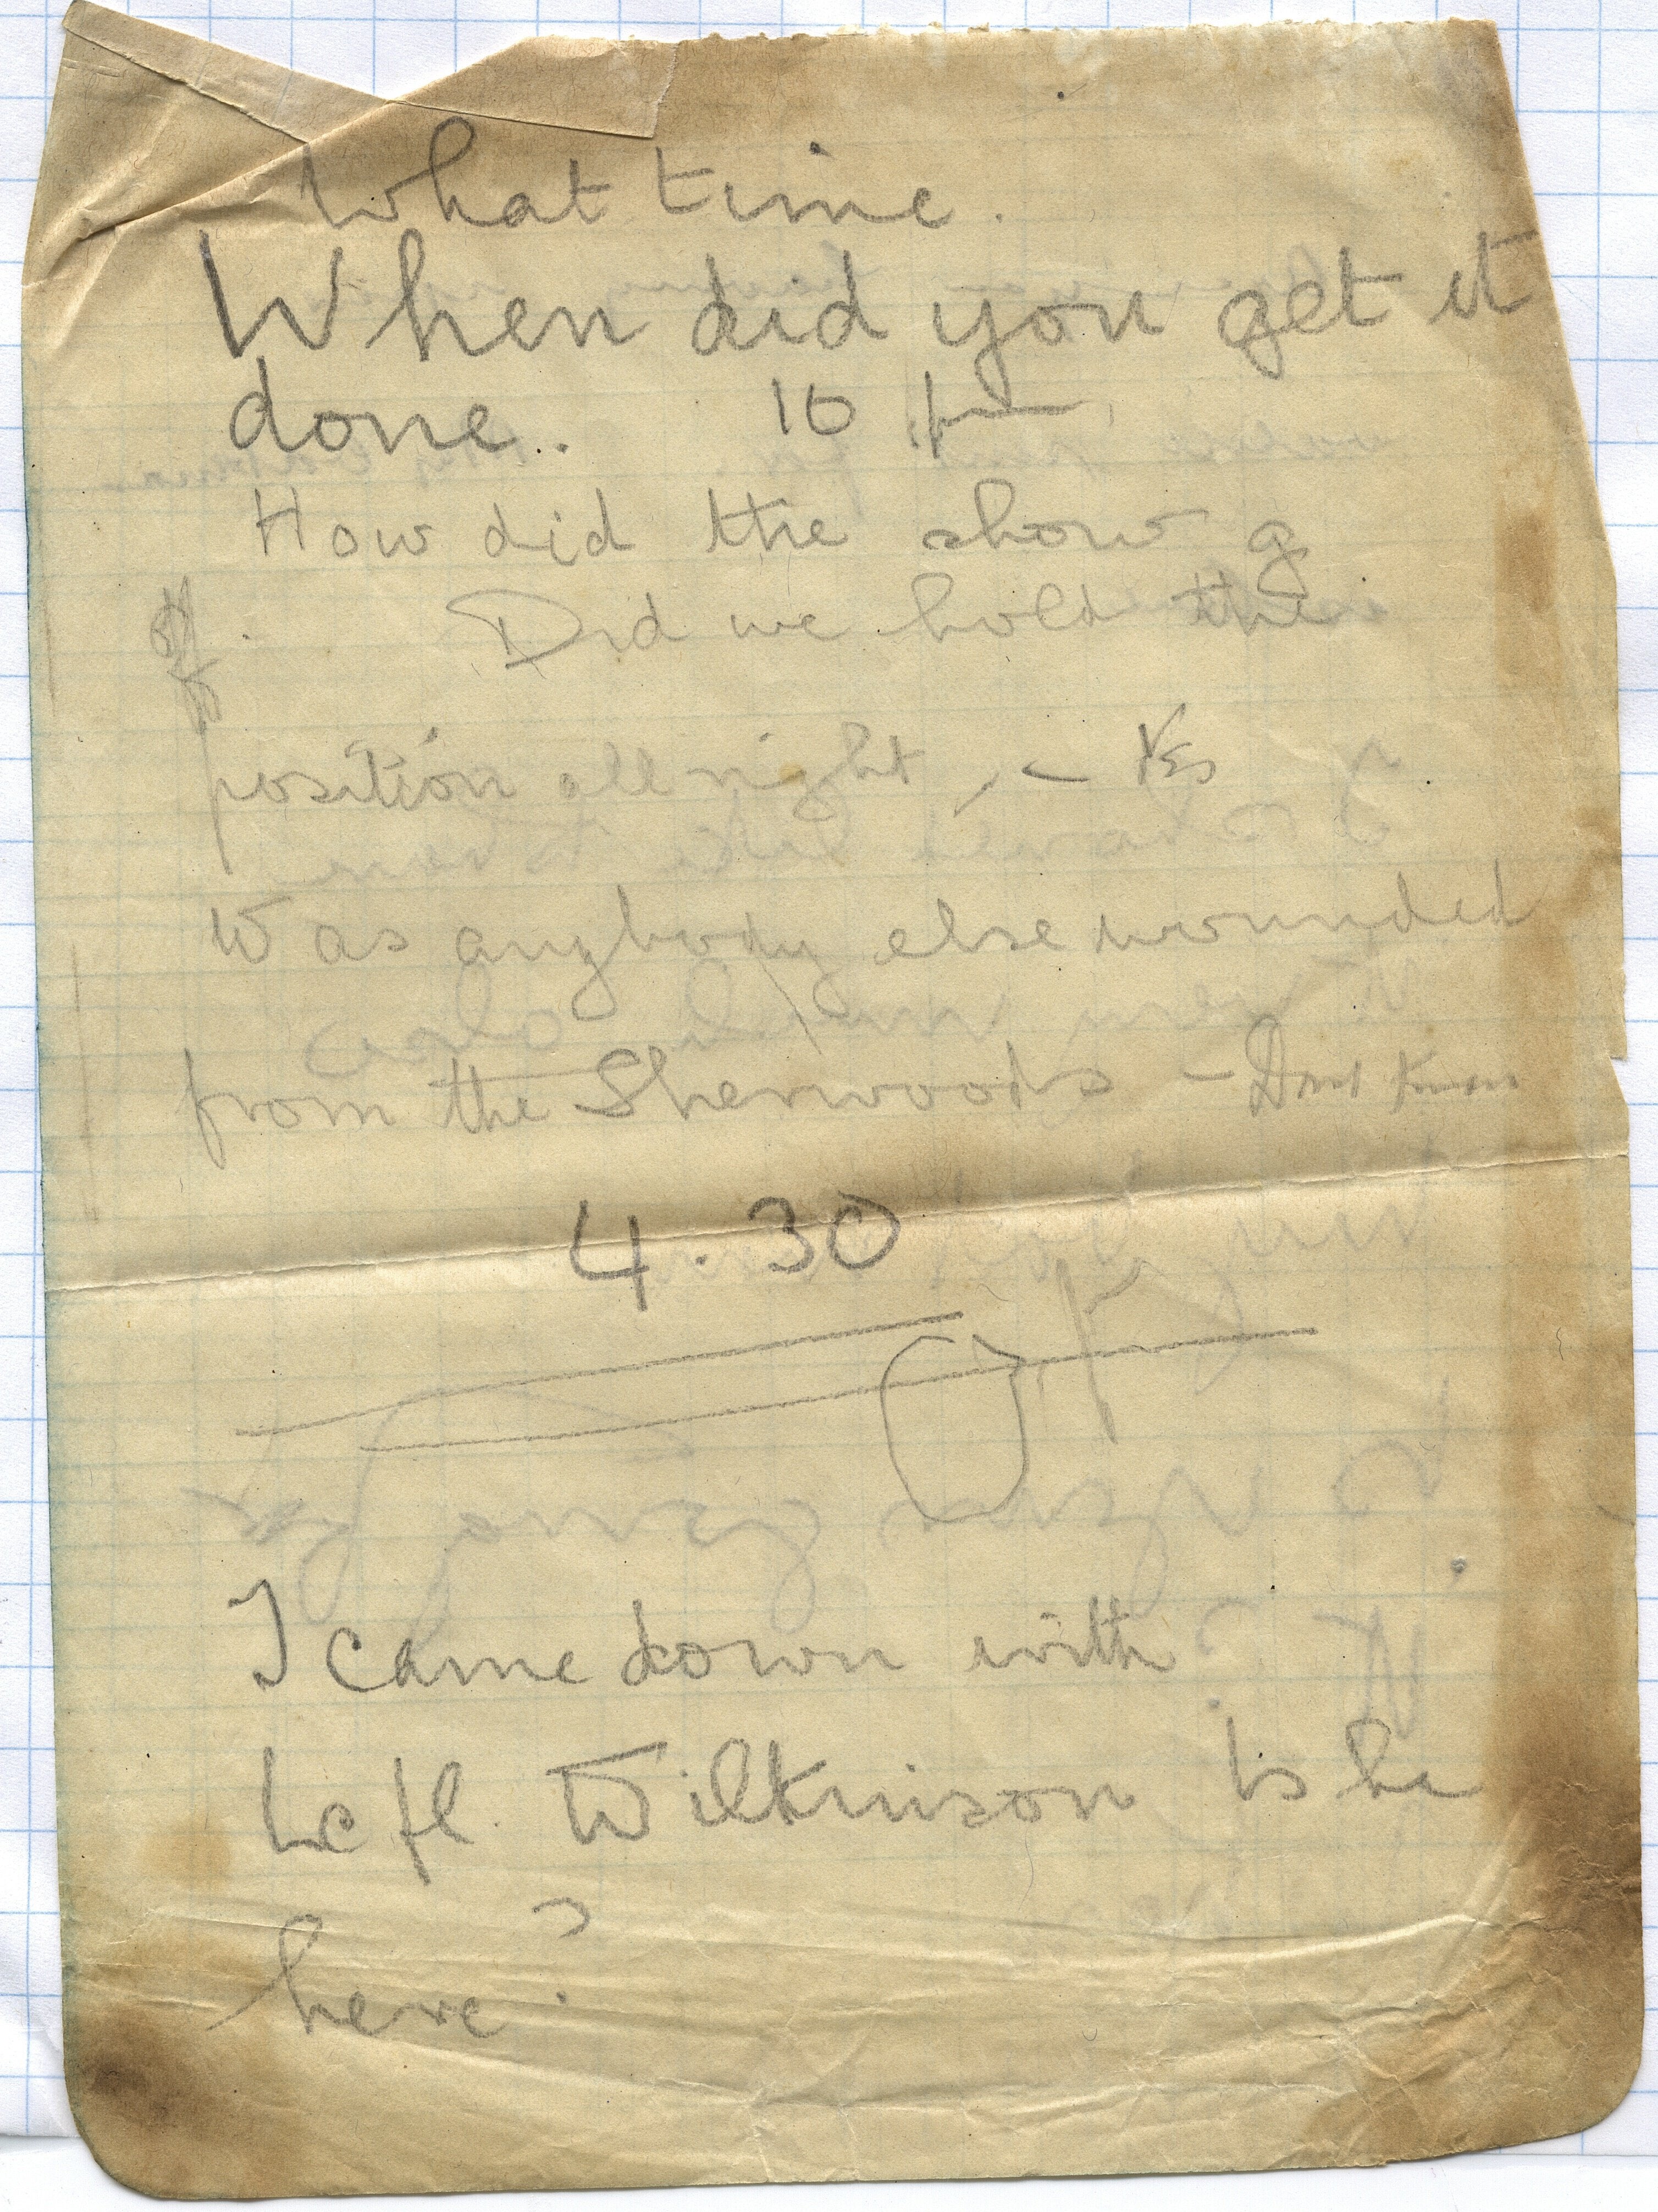 What time.
When did you get it
done.. 10 pm
How did the show g
off. Did we hold the
position all right, - Yes
Was anybody else wounded
from the Sherwoods - Dont Know
4.30
I came down with
Left. Wilkinson Is he
here?